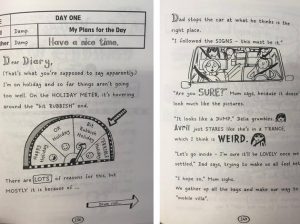 DAY ONE
Damp
My Plans for the Day
Damp
Have a nice time.
Dear Diary,
(That's what you're supposed to say apparently.)
I'm on holiday and so far things aren't going
too well. On the HOLIDAY METER, it's hovering
around the "bit RUBBISH" end.
Holiday
Rubbish
There are LOTS of reasons for this, but
MOSTLY it is because of ...
Dad stops the car at what he thinks is the
right place.
"I followed the SIGNS - this must be it."
"Are you SURE?" Mum says, because it doesn't
look much like the pictures.
"It looks like a DUMP," Delia grumbles.
Avril just STARES like she's in a TRANCE,
which I think is WEIRD.
"Let's go inside - I'm sure it'll be LOVELY once we're
settled," Dad says, trying to make us all feel better.
"I hope so," Mum sighs.
We gather up all the bags and make our way to
"mobile villa".